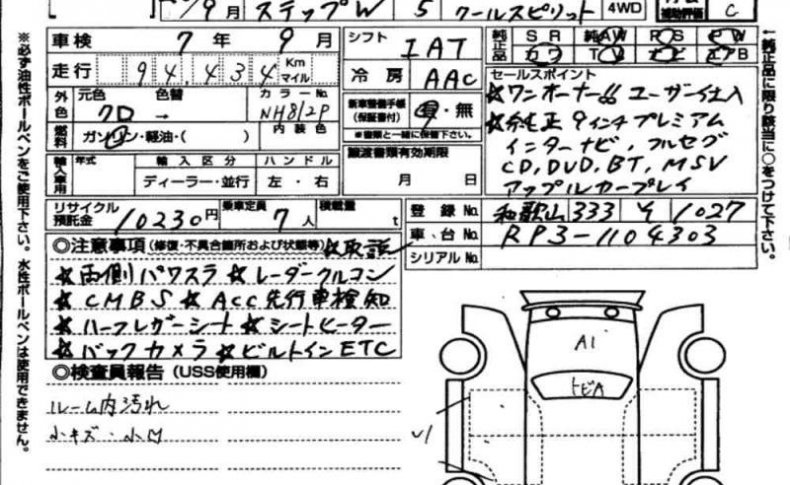 9月 ステップW 5 クールスピリット 4WD 補助評価 C
※必ず油性ボールペンをご使用下さい。水性ボールペンは使用できません。
車検 7年 9月
走行 94,434 Km マイル
外色 元色 クロ → 色替 カラーNo. NH812P
燃料 ガソリン・軽油・( ) 内装色
輸入車用 年式 輸入区分 ディーラー・並行 ハンドル 左・右
シフト IAT
冷房 AAC
新車整備手帳(保証書付) 有・無
※書類と一緒に保管下さい。
譲渡書類有効期限
月 日
純正品 SR 純AW PS PW
カワ TV ナビ エアB
セールスポイント
☆ワンオーナー!! ユーザー仕入
☆純正9インチプレミアム
インターナビ,フルセグ
CD,DVD,BT,MSV
アップルカープレイ
↑純正品に限り該当に○をつけて下さい。
リサイクル預託金 10230円 乗車定員 7人 積載量 t
登録No. 和歌山 333 1027
車台No. RP3-1104303
シリアルNo.
◎注意事項(修復・不具合箇所および状態等)☆取説
☆両側パワスラ☆レーダークルコン
☆CMBS☆ACC先行車検知
☆ハーフレザーシート☆シートヒーター
☆バックカメラ☆ビルトインETC
◎検査員報告(USS使用欄)
ルーム内汚れ
小キズ・小凹
A1
トビA